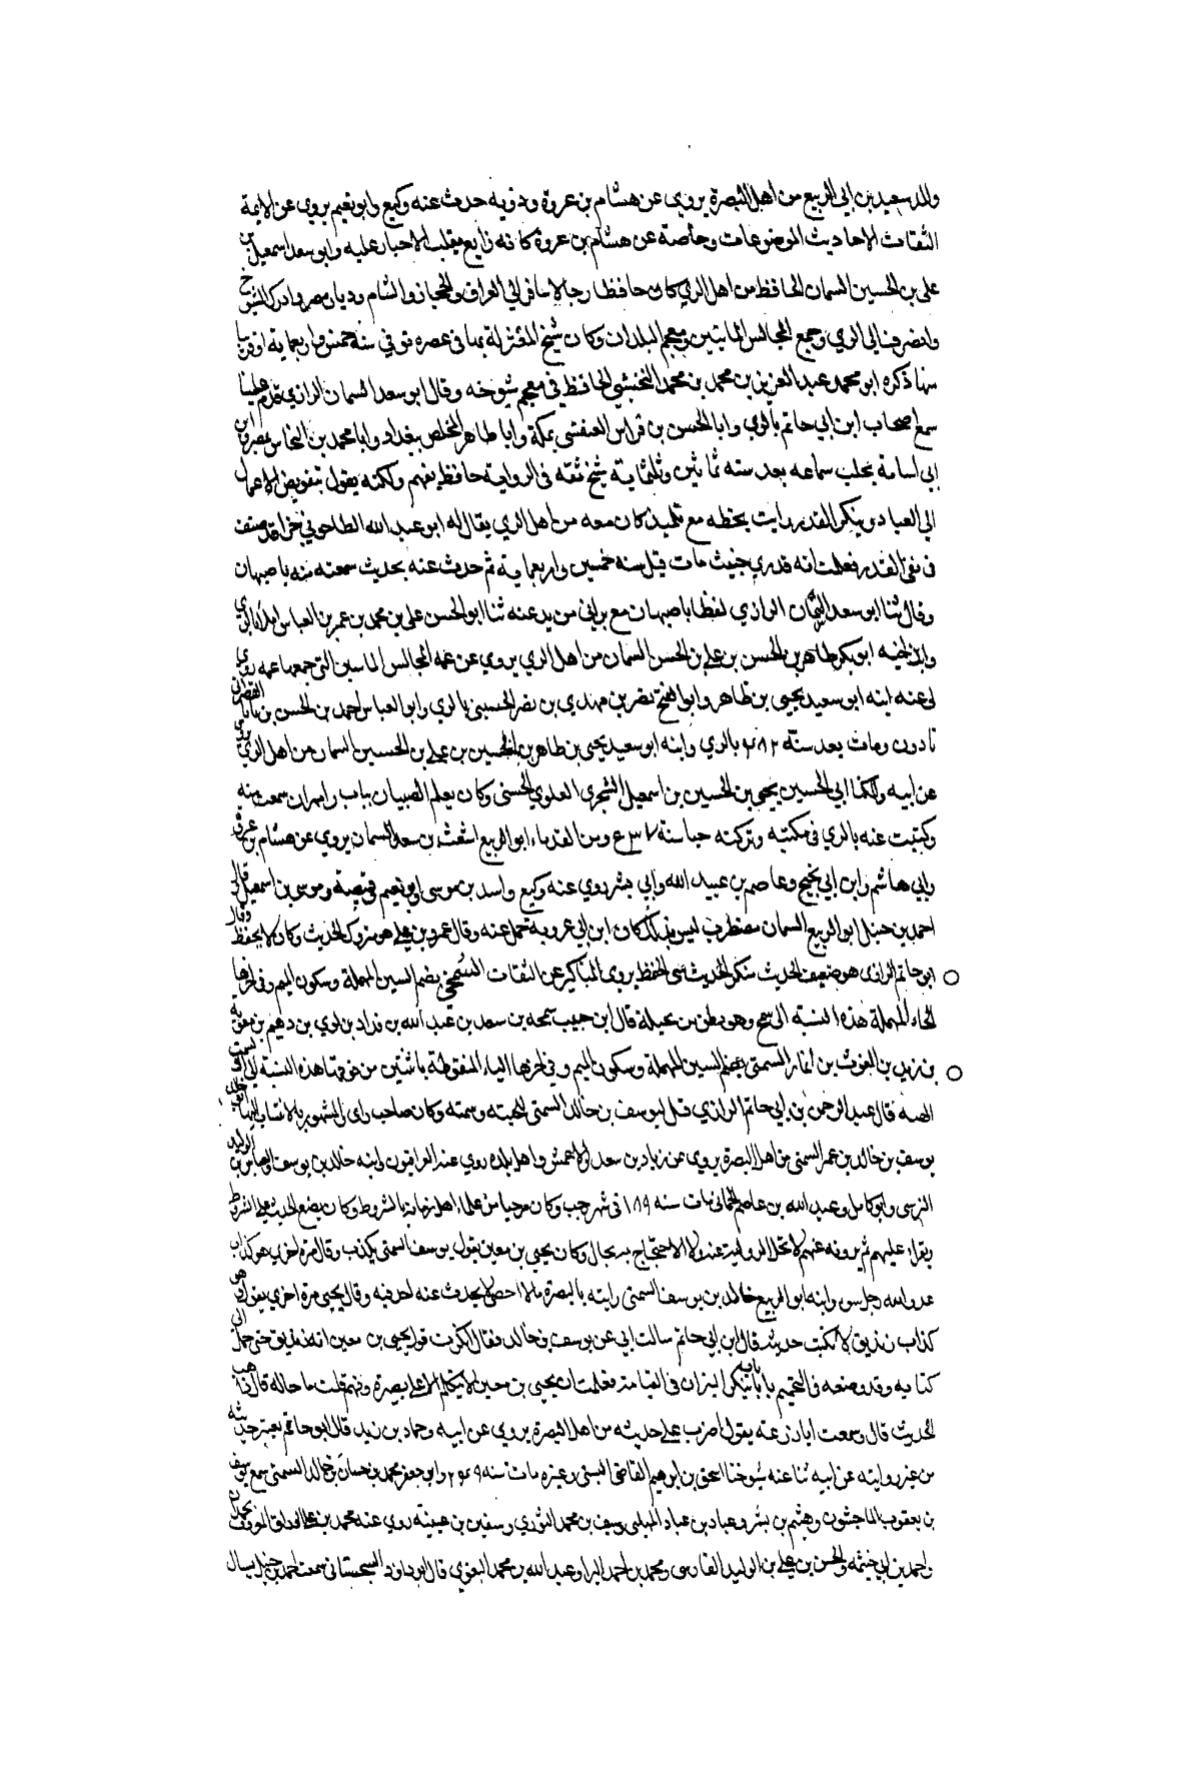 والد سعيد بن ابي الربيع من اهل البصرة يروي عن هشام بن عروة وذويه حدث عنه وكيع وابو نعيم يروي عن الايمة
الثقات الاحاديث الموضوعات وخاصة عن هشام بن عروة كانه ولع بقلب الاخبار عليه وابو سعد اسمعيل بن
علي بن الحسين السمان الحافظ من اهل الري كان حافظا رحالا سافر الي العراق والحجاز والشام وديار مصر وادرك الشيوخ
وانصرف الي الري وجمع المجالس المايتين ومعجم البلدان وكان شيخ المعتزلة بها في عصره توفي سنة خمس واربعماية او قريبا
منها ذكره ابو محمد عبد العزيز بن محمد بن محمد النخشبي الحافظ في معجم شيوخه وقال ابو سعد السمان الرازي قدم علينا
سمع اصحاب ابن ابي حاتم بالري وابا الحسن بن فراس العبقسي بمكة وابا طاهر المخلص ببغداد وابا محمد بن النحاس بمصر وابن
ابي اسامة بحلب سماعه بعد سنه ثمانين وثلثماية شيخ ثقه في الرواية حافظ يفهم ولكنه يقول بتفويض الاعمال
الي العباد وينكر القدر رايت بخطه مع تلميذ كان معه من اهل الري يقال له ابو عبد الله الطاحوني جزا قد صنف
في نفي القدر فعلمت انه قدري خبيث مات قبل سنه خمسين واربعماية ثم حدث عنه بحديث سمعته منه باصبهان
وقال ثنا ابو سعد السمان الرازي لفظا باصبهان مع براتي من بدعته ثنا ابو الحسن علي بن محمد بن عمر بن العباس املا بالري
وابن اخيه ابو بكر طاهر بن الحسن بن علي بن الحسن السمان من اهل الري يروي عن عمه المجالس المايتين التي جمعها عمه روي
لي عنه ابنه ابو سعيد يحيي بن طاهر وابو الفتح نصر بن مهدي بن نصر الحسيني بالري وابو العباس احمد بن الحسن بن بابا القصراني
باذون ومات بعد سنة ٤٨٢ بالري وابنه ابو سعيد يحيي بن طاهر بن الحسين بن علي بن الحسين السمان من اهل الري يروي
عن ابيه والكيا ابي الحسين يحيي بن الحسين بن اسمعيل الشجري العلوي الحسني وكان يعلم الصبيان بباب رامهران سمعت منه
وكتبت عنه بالري في مكتبه وتركته حيا سنة ٥٣٧ ومن القدماء ابو الربيع اشعث بن سعد السمان يروي عن هشام بن عروة
وابي هاشم وابن ابي نجيح وعاصم بن عبيد الله وابي بشر روي عنه وكيع واسد بن موسي وابو نعيم وقبيصة وموسي بن اسمعيل قال
احمد بن حنبل ابو الربيع السمان مضطرب ليس بذاك كان ابن ابي عروبة حمل عنه وقال عمرو بن علي هو متروك الحديث وكان لا يحفظ وقال
ابو حاتم الرازي هو ضعيف الحديث منكر الحديث سي الحفظ يروي المناكير عن الثقات السُمحي بضم السين المهملة وسكون الميم وفي اخرها
الحاء المهملة هذه النسبة الي سمح وهو بطن من بجيلة قال ابن حبيب سمحه بن سعد بن عبد الله بن قداد بن لوي بن دهيم بن معوية
بن زيد بن الغوث بن انمار السمتي بفتح السين المهملة وسكون الميم وفي اخرها التاء المنقوطة باثنتين من فوقها هذه النسبة الي السمت
الهيئة قال عبد الرحمن بن ابي حاتم الرازي قيل ليوسف بن خالد السمتي للحيته وسمته وكان صاحب راي والمشهور بالانتساب اليها ابو خالد
يوسف بن خالد بن عمر السمتي من اهل البصرة يروي عن زياد بن سعد والاعمش واهل بلده روي عنه العراقيون وابنه خالد بن يوسف والعباس بن الوليد
النرسي وابو كامل وعبيد الله بن عاصم الحماني مات سنه ١٨٩ في شهر رجب وكان مرجيا من علماء اهل زمانه بالشروط وكان يضع الحديث علي الشيوخ
ويقراء عليهم ثم يرويه عنهم لا تحل الرواية عنه ولا الاحتجاج به بحال وكان يحيي بن معين يقول يوسف السمتي يكذب وقال مرة اخري هو كذاب
عدو الله رجل سو وابنه ابو الربيع خالد بن يوسف السمتي رايته بالبصرة ما لا احصي لا يحدث عنه احد فيه وقال يحيي مرة اخري يقول هو
كذاب زنديق لا يكتب حديثه قال ابن ابي حاتم سالت ابي عن يوسف بن خالد فقال انكرت قول يحيي بن معين انه زنديق حتي حمل الي
كتابه قد وضعه في التجهم بابا بابا ينكر الميزان في القيامة فعلمت ان يحيي بن معين لا يتكلم الا علي بصيرة وفهم قلت ما حاله قال ذاهب
الحديث قال وسمعت ابا زرعة يقول اضرب علي حديثه من اهل البصرة يروي عن ابيه وحماد بن زيد قال ابو حاتم يعتبر حديثه
من غير روايته عن ابيه ثنا عنه شيوخنا اسحق بن ابراهيم القاضي البستي وغيره مات سنه ٢٤٩ وابو جعفر محمد بن حسان بن خالد السمتي سمع يوسف
بن يعقوب الماجشون وهشيم بن بشر وعباد بن عباد المهلبي وسيف بن محمد الثوري وسفين بن عيينة روي عنه محمد بن
واحمد بن ابي خيثمه والحسن بن علي بن الوليد الفارسي ومحمد بن احمد البرا وعبد الله بن محمد البغوي قال ابو داود السجستاني سمعت احمد بن حنبل يسال